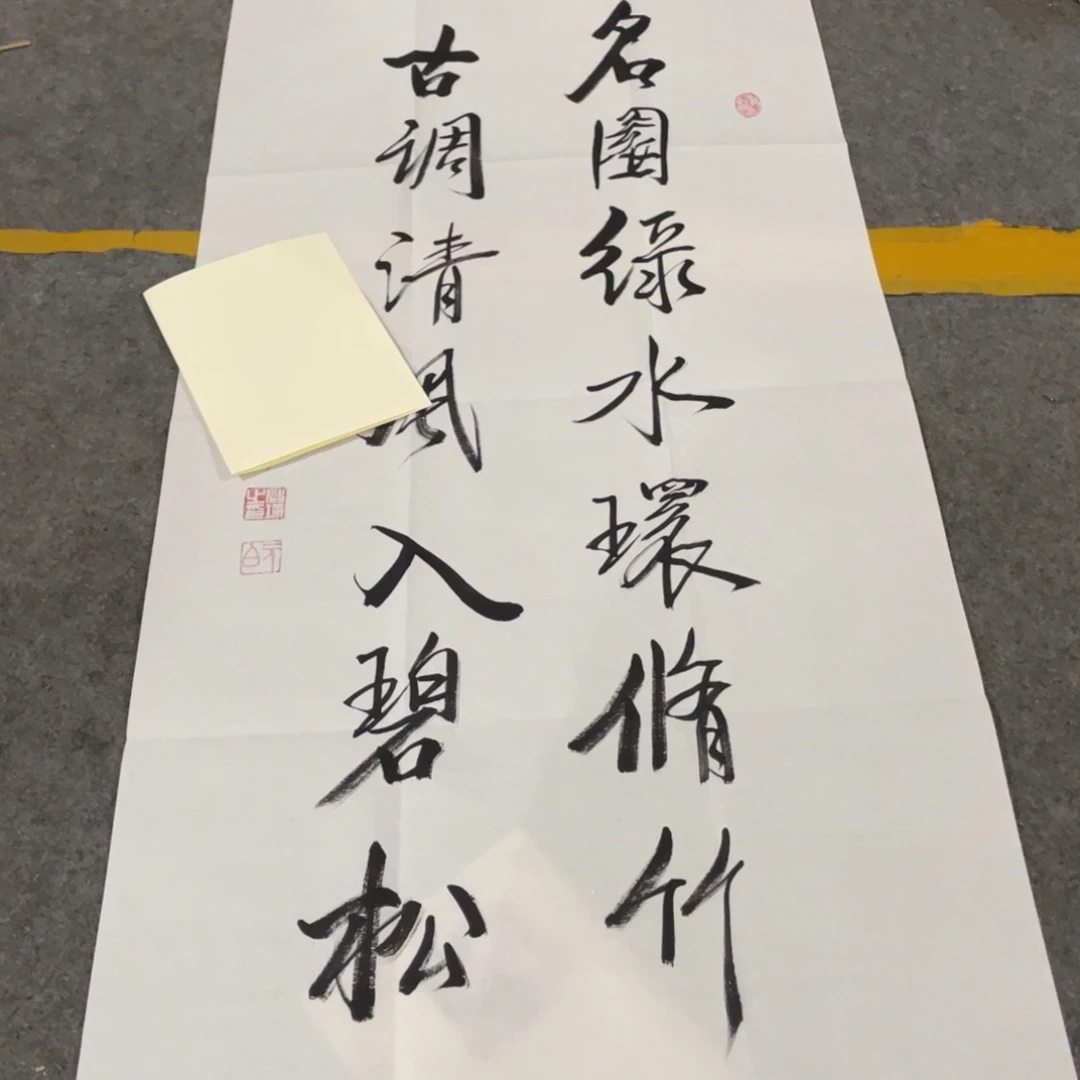 名園綠水環脩竹
古調清風入碧松